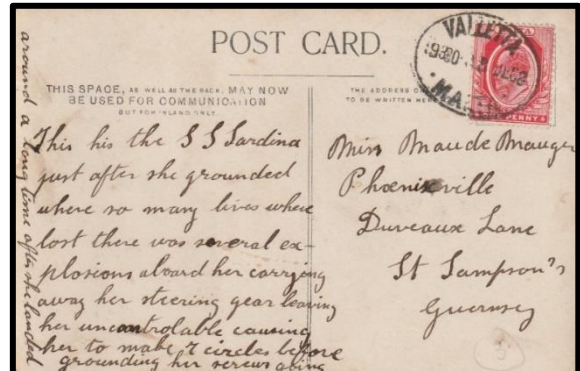 POST CARD.
THIS SPACE, AS WELL AS THE BACK, MAY NOW
BE USED FOR COMMUNICATION
BUT FOR INLAND ONLY.
THE ADDRESS O
TO BE WRITTEN HERE
VALLETTA
MALTA
PENNY
This his the S S Sardina
just after she grounded
where so many lives where
lost there was several ex-
plosions aboard her carrying
away her steering gear leaving
her uncontrolable causing
her to make 7 circles before
grounding her screws going
around a long time after she landed
Miss Maude Mauger
Phoenixville
Duveaux Lane
St Sampson's
Guernsey
3